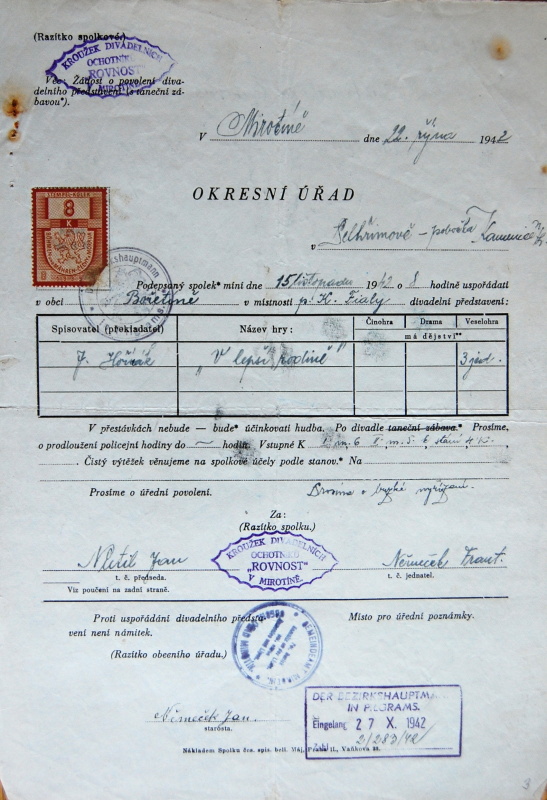 (Razítko spolkové:)
KROUŽEK DIVADELNÍCH
OCHOTNÍKŮ
"ROVNOST"
MIROTÍNĚ
Věc: Žádost o povolení diva-
delního představení (s taneční zá-
bavou*).
V Mirotíně dne 22. října 1942
OKRESNÍ ÚŘAD
STEMPEL-KOLEK
8
K
v Pelhřimově - pobočka Kamenice
Podepsaný spolek* míní dne 15 listopadu 1942 o 8 hodině uspořádati
v obci Bořetíně v místnosti p. K. Fialy divadelní představení:
Spisovatel (překladatel) Název hry: Činohra Drama Veselohra
má dějství**
J. Horák „V lepší rodině" 3 jed.
V přestávkách nebude — bude* účinkovati hudba. Po divadle taneční zábava.* Prosíme,
o prodloužení policejní hodiny do — hodin. Vstupné K I. m. 6 II. m. 5
Čistý výtěžek věnujeme na spolkové účely podle stanov.* Na
Prosíme o úřední povolení. Prosíme o vyřízení.
Za:
(Razítko spolku.)
KROUŽEK DIVADELNÍCH
OCHOTNÍKŮ
"ROVNOST"
V MIROTÍNĚ
Jan Němeček Frant.
t. č. předseda. t. č. jednatel.
Viz poučení na zadní straně.
Proti uspořádání divadelního předsta-
vení není námitek. Místo pro úřední poznámky.
(Razítko obecního úřadu.)
GEMEINDEAMT
DER BEZIRKSHAUPTMA
IN PILGRAMS.
Eingelang 27 X. 1942
2/283/42
Němeček Jan.
starosta.
Nákladem Spolku čes. spis. bell. Máj, Praha II., Vaňkova
3